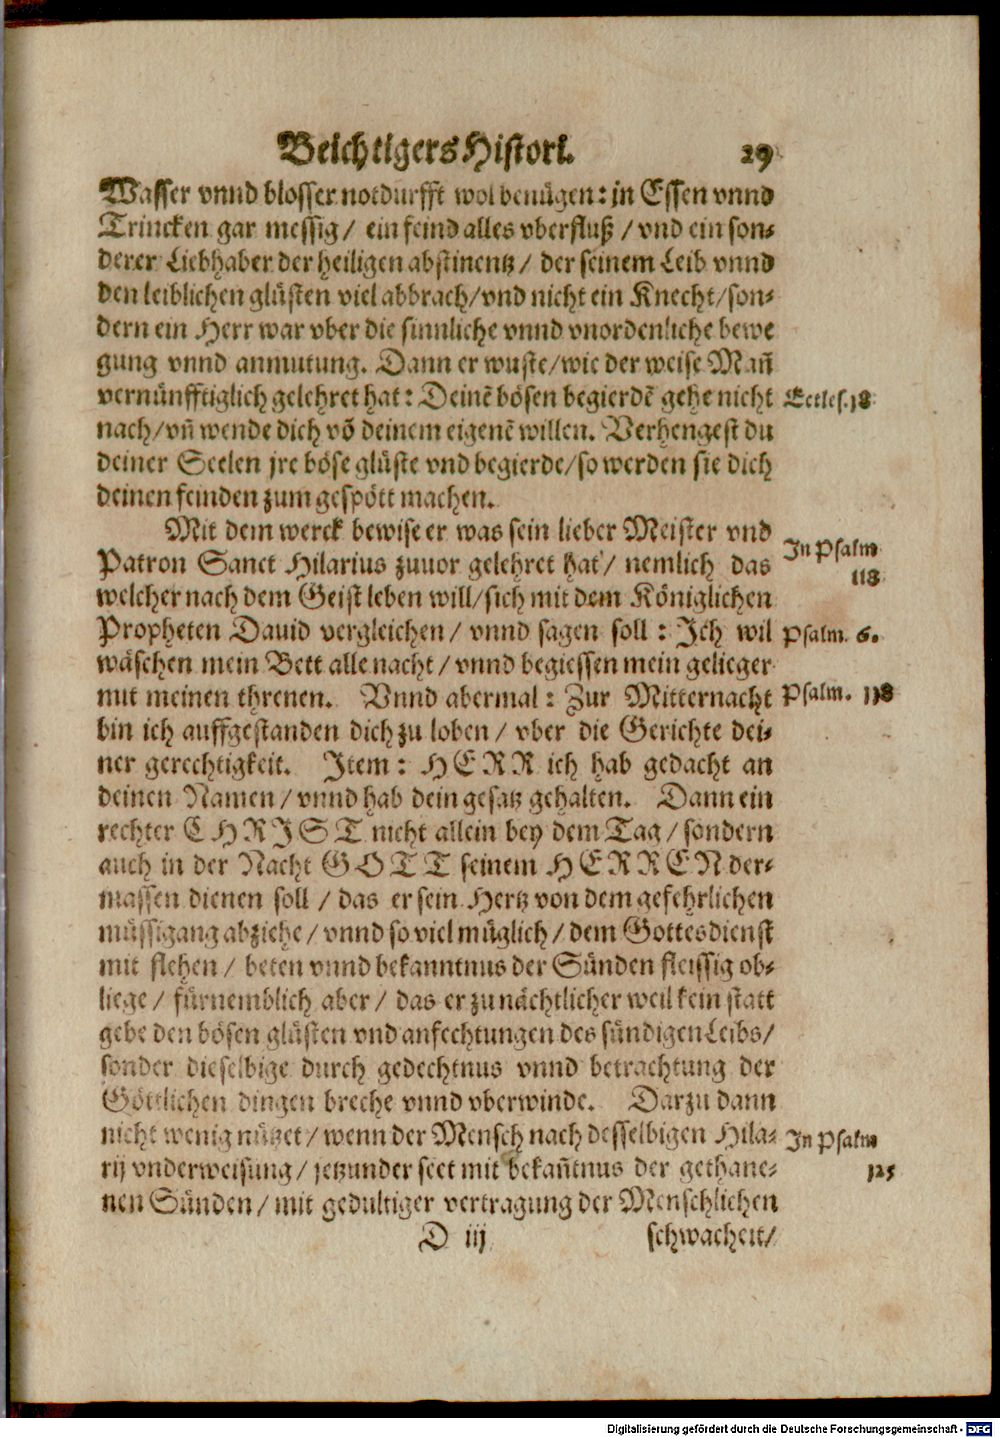 Beichtigers Histori. 29
Wasser vnnd blosser notdurfft wol benügen: in Essen vnnd
Trincken gar messig / ein feind alles vberfluß / vnd ein son-
derer Liebhaber der heiligen abstinentz / der seinem Leib vnnd
den leiblichen glüsten viel abbrach/vnd nicht ein Knecht/son-
dern ein Herr war vber die sinnliche vnnd vnordenliche bewe
gung vnnd anmutung. Dann er wuste/wie der weise Mañ
vernünfftiglich gelehret hat: Deinẽ bösen begierdẽ gehe nicht Eccles. 18
nach/vñ wende dich võ deinem eigenẽ willen. Verhengest du
deiner Seelen jre böse glüste vnd begierde/so werden sie dich
deinen feinden zum gespött machen.
Mit dem werck bewise er was sein lieber Meister vnd
Patron Sanct Hilarius zuuor gelehret hat / nemlich das In Psalm 118
welcher nach dem Geist leben will/sich mit dem Königlichen
Propheten Dauid vergleichen / vnnd sagen soll : Ich wil Psalm. 6.
wäschen mein Bett alle nacht / vnnd begiessen mein gelieger
mit meinen threnen. Vnnd abermal : Zur Mitternacht Psalm. 118
bin ich auffgestanden dich zu loben / vber die Gerichte dei-
ner gerechtigkeit. Item : HERR ich hab gedacht an
deinen Namen / vnnd hab dein gesatz gehalten. Dann ein
rechter CHRIST nicht allein bey dem Tag / sondern
auch in der Nacht GOTT seinem HERREN der-
massen dienen soll / das er sein Hertz von dem gefehrlichen
müssigang abziehe / vnnd so viel müglich / dem Gottesdienst
mit flehen / beten vnnd bekanntnus der Sünden fleissig ob-
liege / fürnemblich aber / das er zu nächtlicher weil kein statt
gebe den bösen glüsten vnd anfechtungen des sündigen Leibs/
sonder dieselbige durch gedechtnus vnnd betrachtung der
Göttlichen dingen breche vnnd vberwinde. Darzu dann
nicht wenig nützet / wenn der Mensch nach desselbigen Hila- In Psalm
rij vnderweisung / jetzunder seet mit bekañtnus der gethane- 125
nen Sünden / mit gedultiger vertragung der Menschlichen
D iij schwacheit/
Digitalisierung gefördert durch die Deutsche Forschungsgemeinschaft - DFG